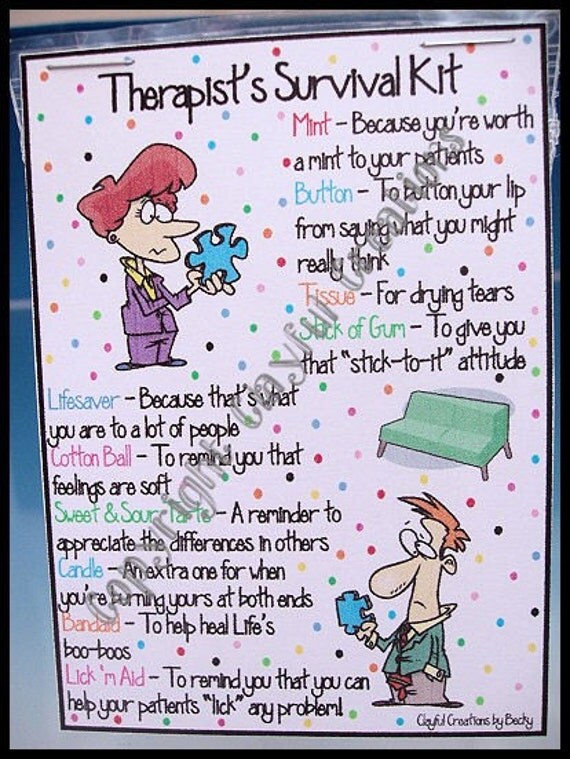 Therapist's Survival Kit
Mint - Because you're worth
a mint to your patients
Button - To button your lip
from saying what you might
really think
Tissue - For drying tears
Stick of Gum - To give you
that "stick-to-it" attitude
Lifesaver - Because that's what
you are to a lot of people
Cotton Ball - To remind you that
feelings are soft
Sweet & Sour Tarts - A reminder to
appreciate the differences in others
Candle - An extra one for when
you're burning yours at both ends
Bandaid - To help heal Life's
boo-boos
Lick 'm Aid - To remind you that you can
help your patients "lick" any problem!
Clayful Creations by Becky
Copyright Clayful Creations